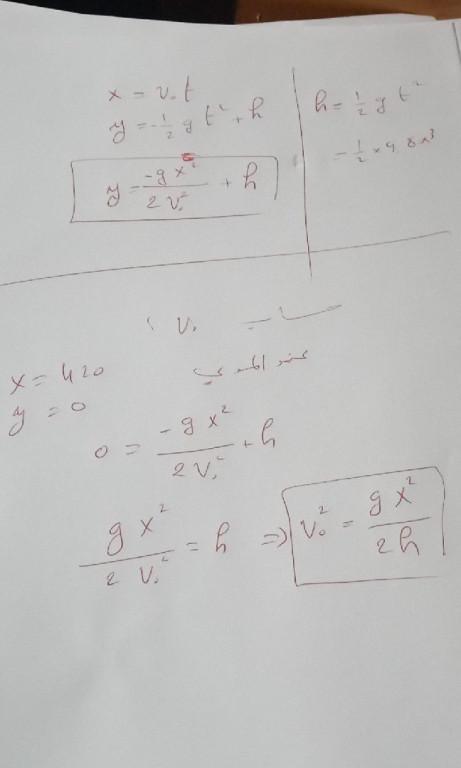 x = v₀t
y = -1/2 g t² + h
y = -g x² / 2 v₀² + h
h = 1/2 g t²
= 1/2 × 9,8 ×
حساب v₀ :
عند المدى
x = 420
y = 0
0 = -g x² / 2 v₀² + h
g x² / 2 v₀² = h ⇒ v₀² = g x² / 2h